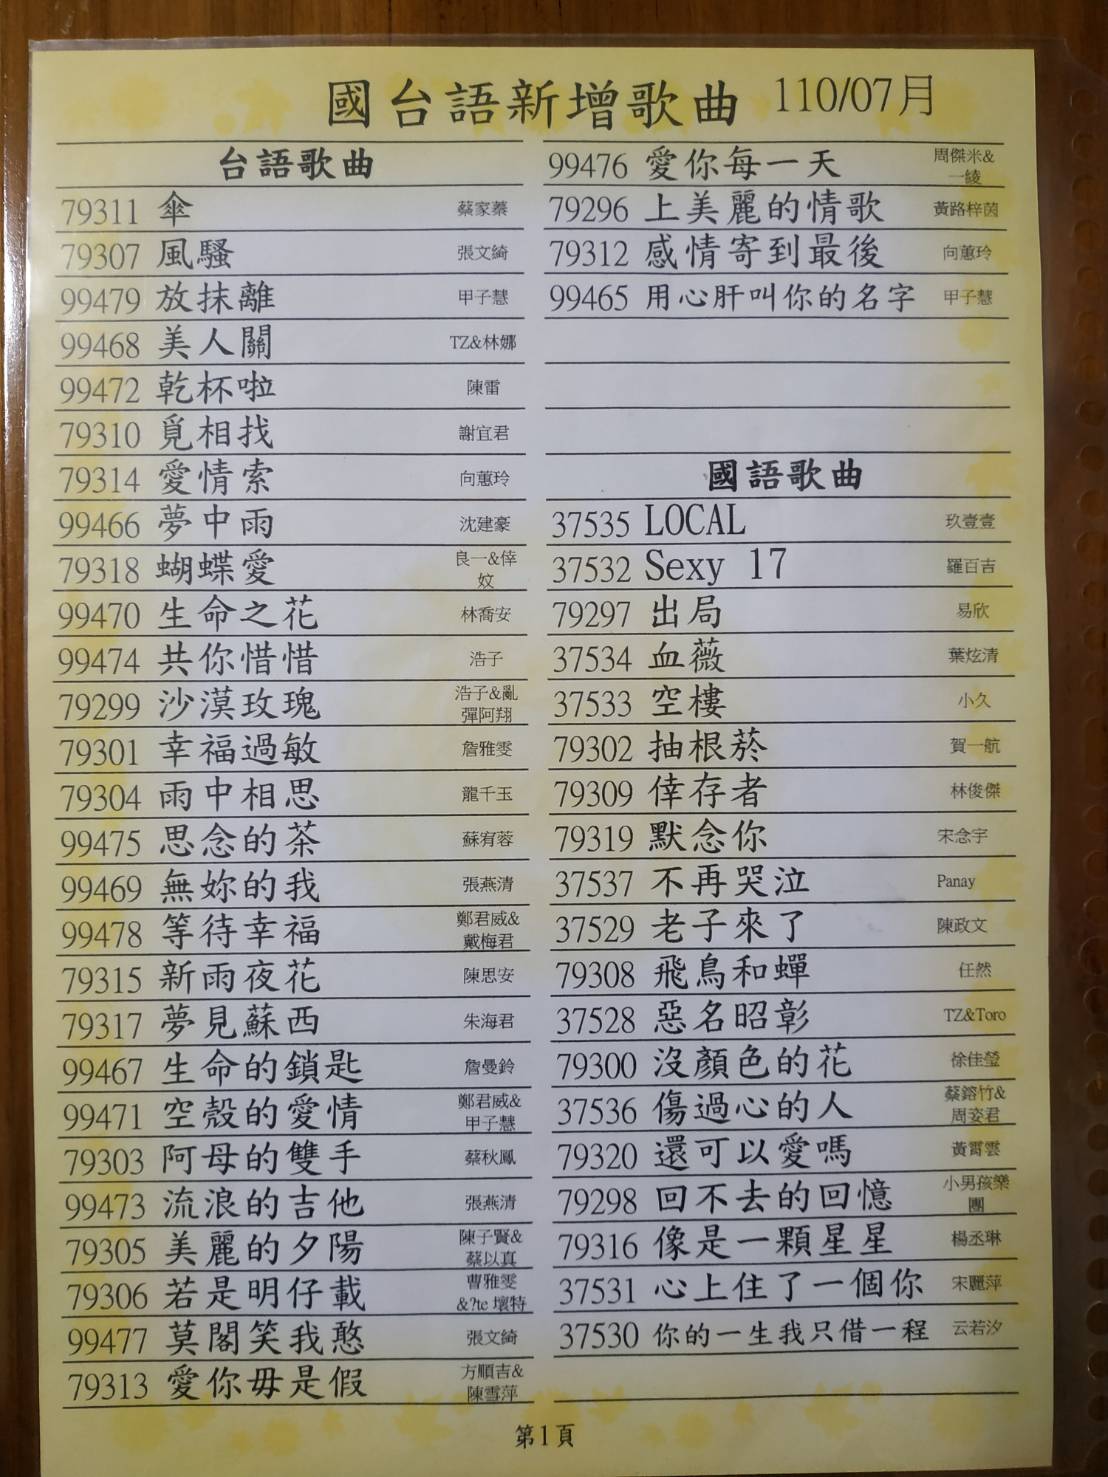 國台語新增歌曲 110/07月
台語歌曲
79311 傘 蔡家蓁
79307 風騷 張文綺
99479 放抹離 甲子慧
99468 美人關 TZ&林娜
99472 乾杯啦 陳雷
79310 覓相找 謝宜君
79314 愛情索 向蕙玲
99466 夢中雨 沈建豪
79318 蝴蝶愛 良一&倖
妏
99470 生命之花 林喬安
99474 共你惜惜 浩子
79299 沙漠玫瑰 浩子&亂
彈阿翔
79301 幸福過敏 詹雅雯
79304 雨中相思 龍千玉
99475 思念的茶 蘇宥蓉
99469 無妳的我 張燕清
99478 等待幸福 鄭君威&
戴梅君
79315 新雨夜花 陳思安
79317 夢見蘇西 朱海君
99467 生命的鎖匙 詹曼鈴
99471 空殼的愛情 鄭君威&
甲子慧
79303 阿母的雙手 蔡秋鳳
99473 流浪的吉他 張燕清
79305 美麗的夕陽 陳子賢&
蔡以真
79306 若是明仔載 曹雅雯
&?te 壞特
99477 莫閣笑我憨 張文綺
79313 愛你毋是假 方順吉&
陳雪萍
99476 愛你每一天 周傑米&
一綾
79296 上美麗的情歌 黃路梓茵
79312 感情寄到最後 向蕙玲
99465 用心肝叫你的名字 甲子慧
國語歌曲
37535 LOCAL 玖壹壹
37532 Sexy 17 羅百吉
79297 出局 易欣
37534 血薇 葉炫清
37533 空樓 小久
79302 抽根菸 賀一航
79309 倖存者 林俊傑
79319 默念你 宋念宇
37537 不再哭泣 Panay
37529 老子來了 陳政文
79308 飛鳥和蟬 任然
37528 惡名昭彰 TZ&Toro
79300 沒顏色的花 徐佳瑩
37536 傷過心的人 蔡鎔竹&
周姿君
79320 還可以愛嗎 黃霄雲
79298 回不去的回憶 小男孩樂
團
79316 像是一顆星星 楊丞琳
37531 心上住了一個你 宋麗萍
37530 你的一生我只借一程 云若汐
第1頁